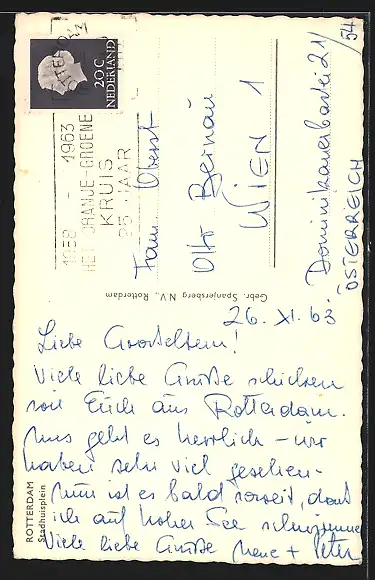 ROTTERDAM
20 C
NEDERLAND
1938 - 1963
HET ORANJE-GROENE
KRUIS
25 JAAR
Oberst
Otto Bernau
WIEN 1
Dominikanerbastei 21/
54
ÖSTERREICH
Gebr. Spanjersberg N.V., Rotterdam
26. XI. 63
Liebe Grosseltern!
Viele liebe Grüße schicken
von Euch aus Rotterdam.
Uns geht es herrlich – wir
haben sehr viel gesehen.
Nun ist es bald soweit, dass
ich auf hoher See schwimme
Viele liebe Grüße + Peter
ROTTERDAM
Stadhuisplein